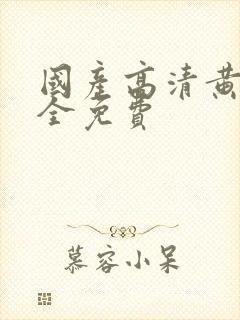 國產高清黃
全免費
慕容小呆